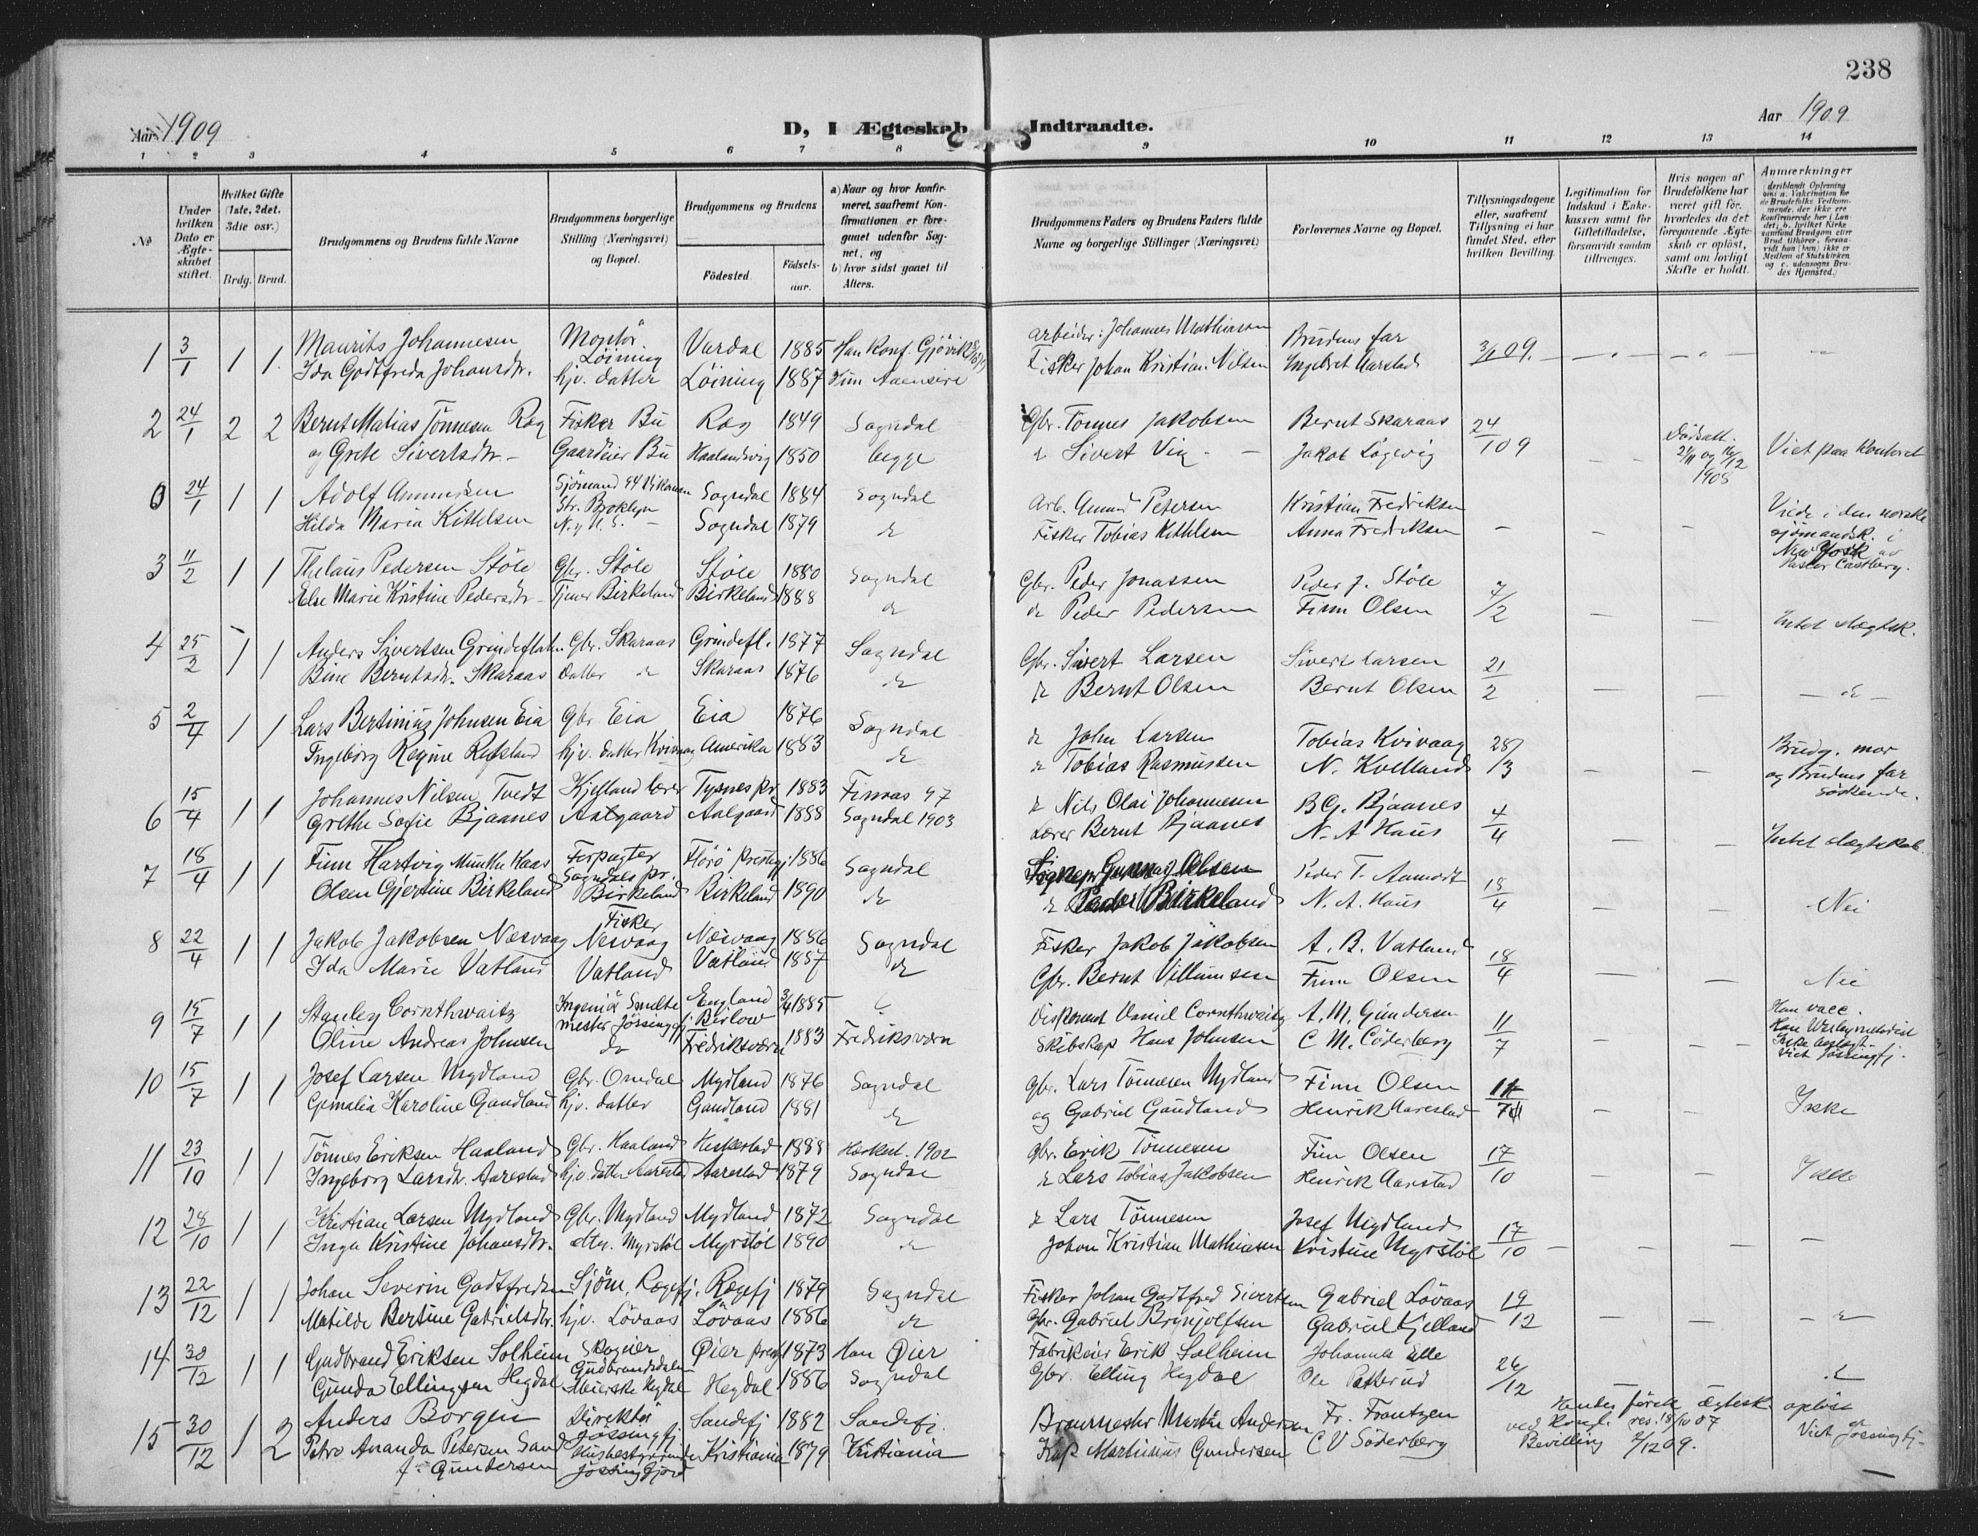 238
Aar 1909
D, I Ægteskab Indtraadte.
Aar 1909
1 2 3 4 5 6 7 8 9 10 11 12 13 14
№
Under hvilken Dato er Ægteskabet stiftet.
Hvilket Gifte (1ste, 2det, 3die osv.)
Brdg. Brud.
Brudgommens og Brudens fulde Navne
Brudgommens borgerlige Stilling (Næringsvei) og Bopæl.
Brudgommens og Brudens
Fødested.
Fødselsaar.
a) Naar og hvor konfirmeret, saafremt Konfirmationen er foregaaet udenfor Sognet, og
b) hvor sidst gaaet til Alters.
Brudgommens Faders og Brudens Faders fulde Navne og borgerlige Stillinger (Næringsvei)
Forlovernes Navne og Bopæl.
Tillysningsdagene eller, saafremt Tillysning ei har fundet Sted, efter hvilken Bevilling.
Legitimation for Indskud i Enkekassen samt for Giftetilladelse, forsaavidt saadan tiltrænges.
Hvis nogen af Brudefolkene har været gift før, hvorledes da det foregaaende Ægteskab er opløst, samt om lovligt Skifte er holdt.
Anmærkninger
1 3/1 1 1 Maurits Johannesen Montör Löining Vardal 1885 Han konf. Gjövik arbeider Johannes Mathiasen Brudens far 3/1 09.
Ida Godtfreda Johansdr. hjv. datter Löining 1887 Fisker Johan Kristian Nilsen Ingebret Aarstad
2 24/1 2 2 Bernt Matias Tönnesen Rög Fisker Bu Rög 1849 Sogndal Gbr. Tönnes Jakobsen Bernt Skaraas 24/1 09 Viet paa kontoret
og Grete Sivertsdr. Gaardeier Bu Haalandsvig 1850 begge Sivert Vig Jakob Lögevig 1908
0 24/1 1 1 Adolf Amundsen Sjömand 94 Str. Broklyn Sogndal 1884 Sogndal Arb. Amund Petersen Kristian Fredriksen Viede i den norske
Hilda Maria Kittelsen N.y. U.S. Sogndal 1879 Fisker Tobias Kittelsen Anna Fredriksen sjömandsk. i New York av Pastor Castberg.
3 11/2 1 1 Thelaus Pedersen Stöle Gbr. Stöle Stöle 1880 Sogndal Gbr. Peder Jonassen Peder J. Stöle 7/2
Else Marie Kristine Pedersdr. Tjener Birkeland Birkeland 1888 Peder Pedersen Finn Olsen Intet slægtsk.
4 25/2 1 1 Anders Sivertsen Grindeflaten Gbr. Skaraas Grindefl. 1877 Sogndal Gbr. Sivert Larsen Sivert Larsen 21/2
Bine Berntsdr. Skaraas Datter Skaraas 1876 Bernt Olsen Bernt Olsen
5 2/4 1 1 Lars Bertinius Johnsen Eia Gbr Eia Eia 1876 Sogndal John Larsen Tobias Kvivaag 28/3 Brudg. mor
Ingeborg Regine Refsland hjv. datter Kvivaag Amerika 1883 Tobias Rasmussen N. Kvelland og Brudens far Søskende.
6 15/4 1 1 Johannes Nilsen Tvedt Kjelland lærer Tysnes pr. 1883 Finnaas 97 Nils Olai Johannesen B G. Bjaanes 4/4
Grethe Sofie Bjaanes Aalgaard Aalgaard 1888 Sogndal 1903 Lærer Bernt Bjaanes N. A Haus Intet slægtskab
7 18/4 1 1 Finn Hartvig Munthe Kaas Forpagter Sogndals pr. Flörö prestegj. 1886 Sogndal Sogнepr Gunnar Olsen Peder T. Aamodt 18/4
Olsen Gjertine Birkeland Birkeland Birkeland 1890 Peder Birkeland N. A. Haus Nei
8 22/4 1 1 Jakob Jakobsen Næsvaag Fisker Nesvaag Næsvaag 1886 Sogndal Fisker Jakob Jakobsen A. B. Vatland 18/4
Ida Marie Vatland Vatland Vatland 1887 Gbr. Bernt Villumsen Finn Olsen Nei
9 15/7 1 1 Stanley Cornthwaite Ingeniör Smeltemester Jössingfj England Birlow 1885 Daniel Cornthwaite A. M. Gundersen 11/7 Han vacc.
Oline Andreas Johnsen Fredriksværn 1883 Fredriksværn Skibskap Hans Johnsen C M. Cöderberg Viet Jössingfj.
10 15/7 1 1 Josef Larsen Mydland Gbr. Omdal Mydland 1876 Sogndal Gbr. Lars Tönnesen Mydland Finn Olsen 11/7
Gemalia Karoline Gaudland hjv. datter Gaudland 1881 og Gabriel Gaudland Henrik Aarestad Ikke
11 23/10 1 1 Tönnes Eriksen Haaland Gbr. Haaland Heskestad 1888 Heskest. 1902 Gbr. Erik Tönnesen Finn Olsen 17/10
Ingeborg Larsdr. Aarestad hjv. datter Aarestad Aarestad 1879 Sogndal Lars Tobias Jakobsen Henrik Aarstad Ikke
12 28/10 1 1 Kristian Larsen Mydland Gbr. Mydland Mydland 1872 Sogndal Lars Tönnesen Josef Mydland 17/10
Inga Kristine Johansdtr. Myrstöl Myrstöl 1890 Johan Kristian Mathiasen Kristine Myrstöl
13 22/12 1 1 Johan Severin Godtfredsen Sjöm. Rægefj. Rægefj 1879 Sogndal Fisker Johan Godtfred Sivertsen Gabriel Lövaas 19/12
Matilde Bertine Gabrielsdtr. hjv. Lövaas Lövaas 1886 Gbr. Gabriel Brynjolfsen Gabriel Kjelland
14 30/12 1 1 Gudbrand Eriksen Solheim Skogeier Gudbrandsdalen Øier prest 1873 Han Øier Fabrikeier Erik Solheim Johanna 26/12
Gunda Ellingsen Hegdal Meierske Hegdal Hegdal 1886 Sogndal Gbr. Elling Hegdal Ole
15 30/12 1 2 Anders Borgen Direktör Jössingfj Sandefj 1882 Sandefj. Martin Andersen Fr. Frantzen ved Kongl. res. 18/10 07 opløst
Petra Amanda Petersen Sand f. Gundersen Husbestyrerinde Jössingfjord Kristiania 1879 Kristiania Kap Martinius Gundersen C V Söderberg Bevilling 2/12 09. Viet Jössingfj.